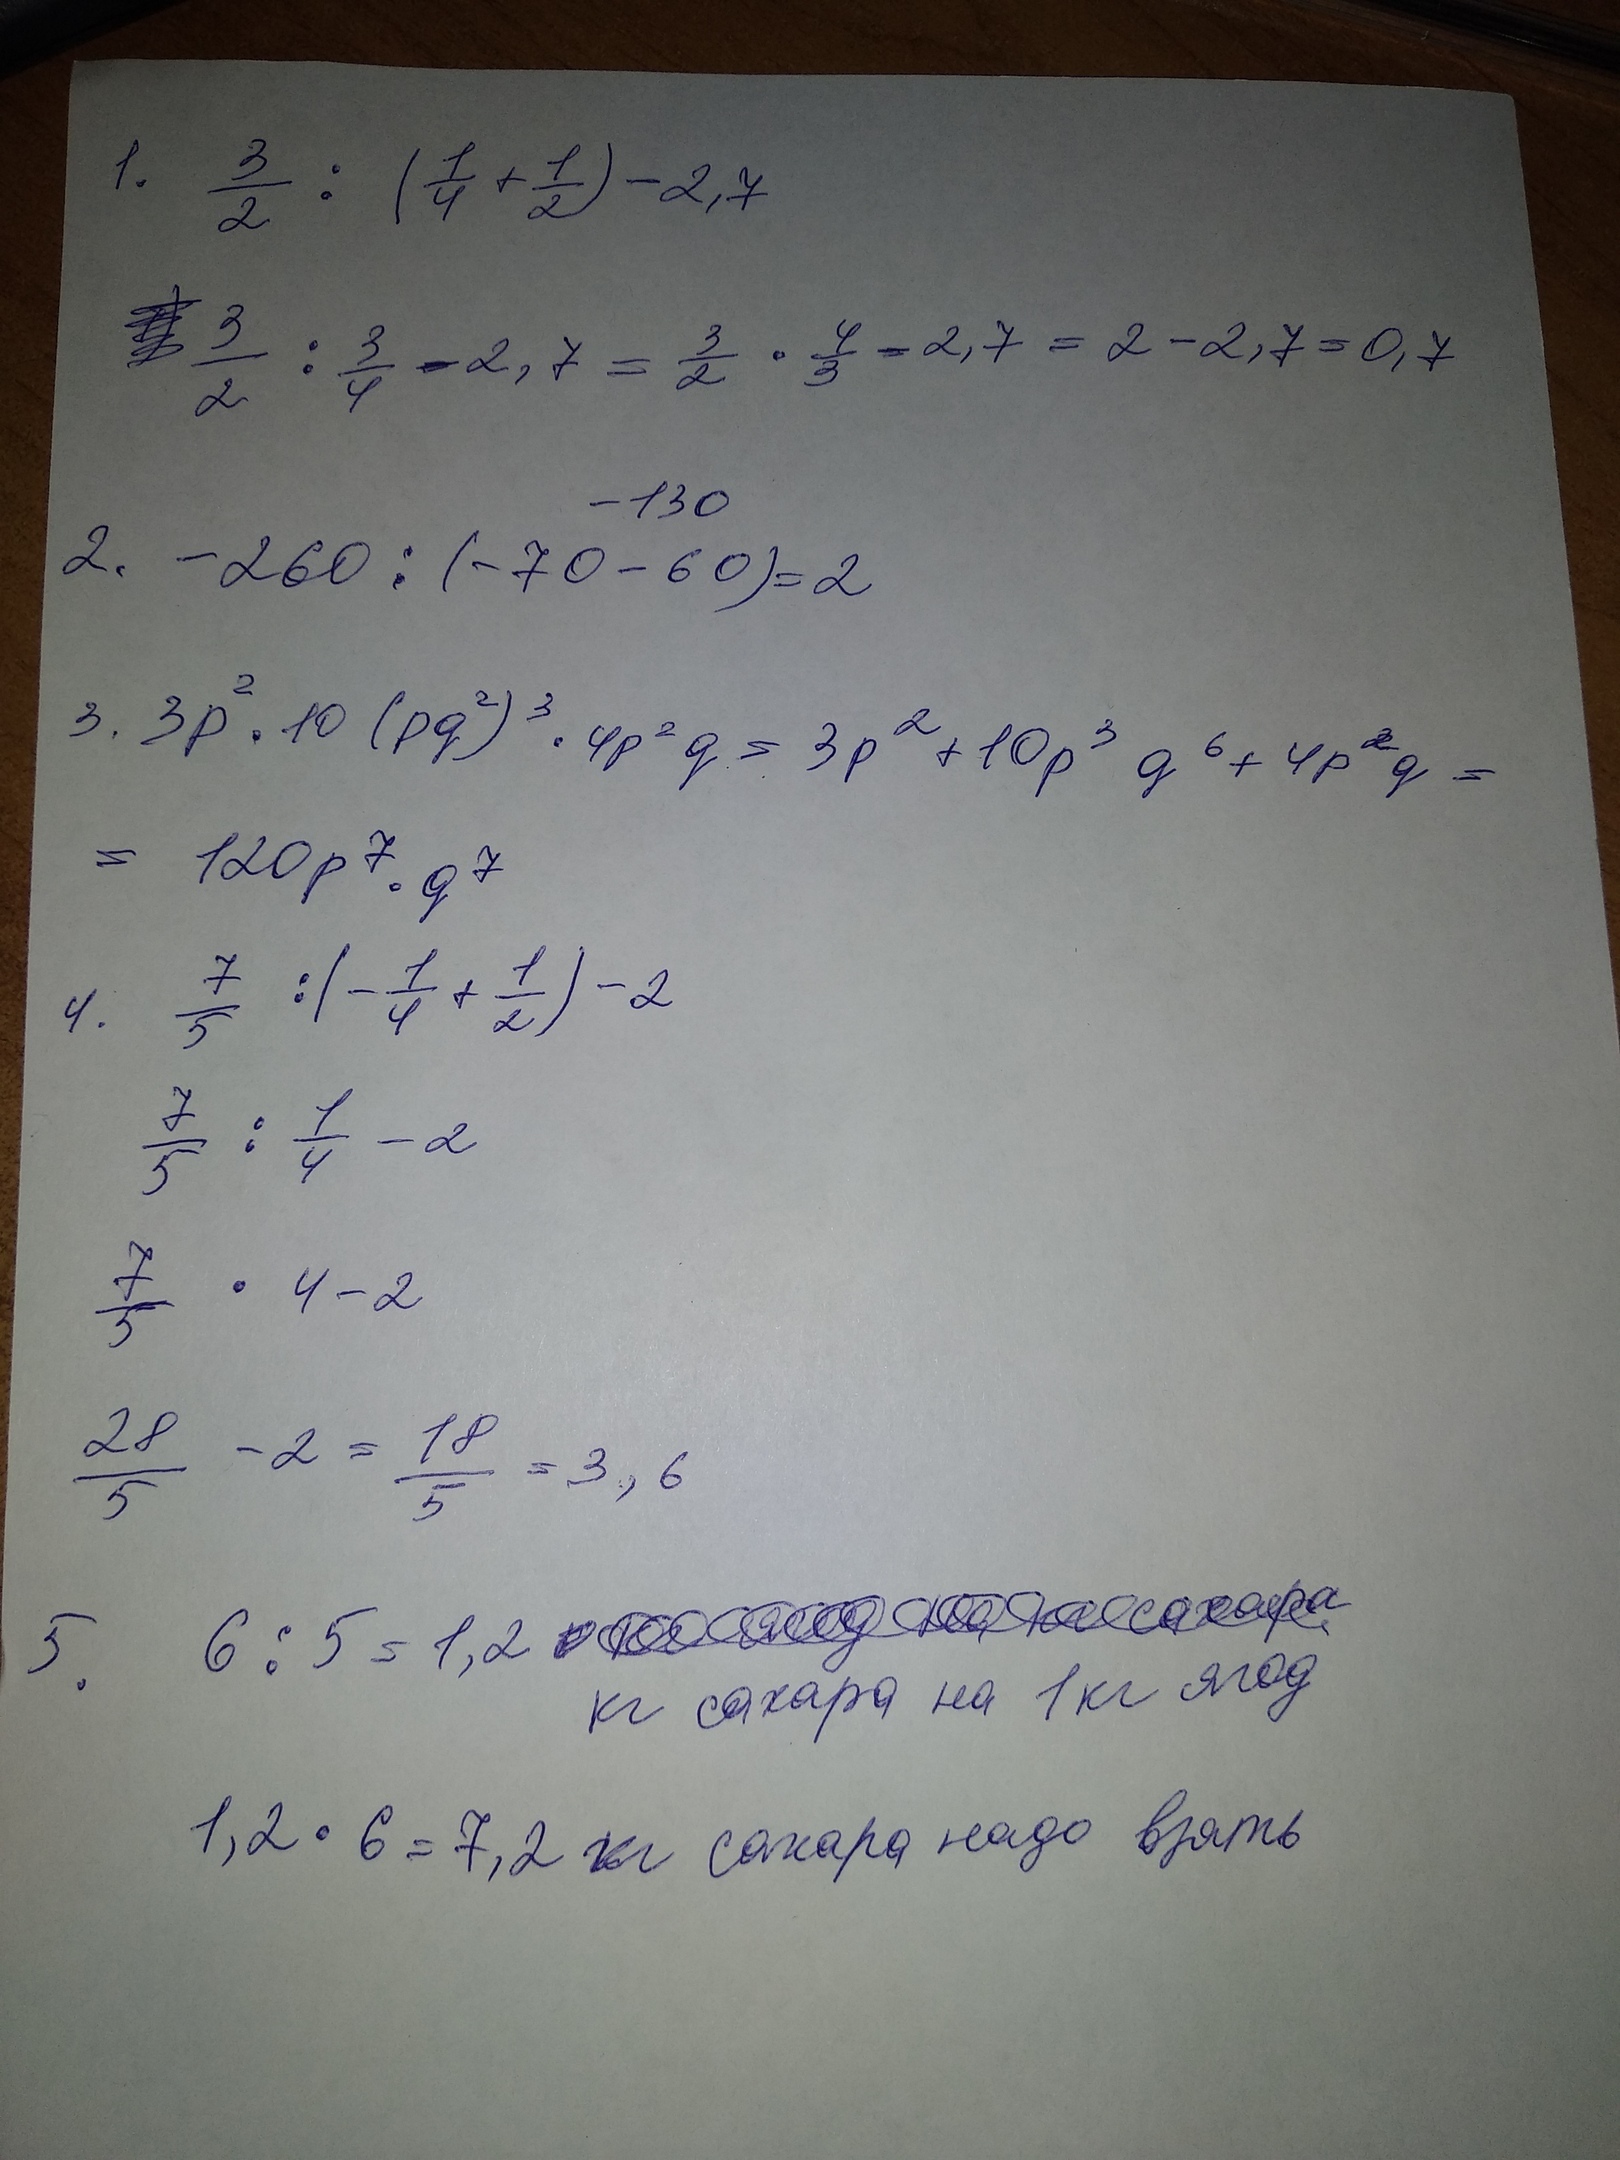 1. 3/2 : (1/4 + 1/2) - 2,7
3/2 : 3/4 - 2,7 = 3/2 · 4/3 - 2,7 = 2 - 2,7 = 0,7
-130
2. -260 : (-70 - 60) = 2
3. 3p² · 10 (pq²)³ · 4p²q = 3p² + 10p³ q⁶ + 4p²q =
= 120p⁷ · q⁷
4. 7/5 : (-1/4 + 1/2) - 2
7/5 : 1/4 - 2
7/5 · 4 - 2
28/5 - 2 = 18/5 = 3,6
5. 6 : 5 = 1,2 сахара
кг сахара на 1 кг ягод
1,2 · 6 = 7,2 кг сахара надо взять